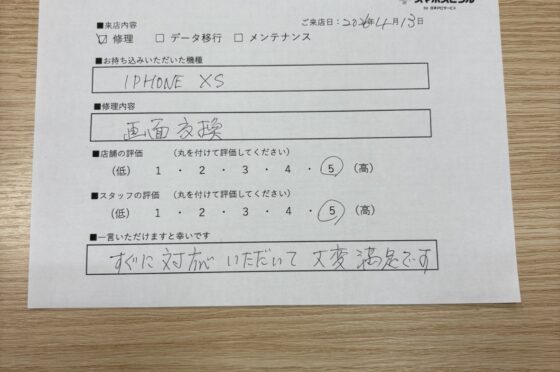 スマホスピタル
by 日本PCサービス
■来店内容
ご来店日：2026年4月13日
☑ 修理 □ データ移行 □ メンテナンス
■お持ち込みいただいた機種
IPHONE XS
■修理内容
画面交換
■店舗の評価 (丸を付けて評価してください)
(低) 1 ・ 2 ・ 3 ・ 4 ・ 5 (高)
■スタッフの評価 (丸を付けて評価してください)
(低) 1 ・ 2 ・ 3 ・ 4 ・ 5 (高)
■一言いただけますと幸いです
すぐに対応いただいて大変満足です